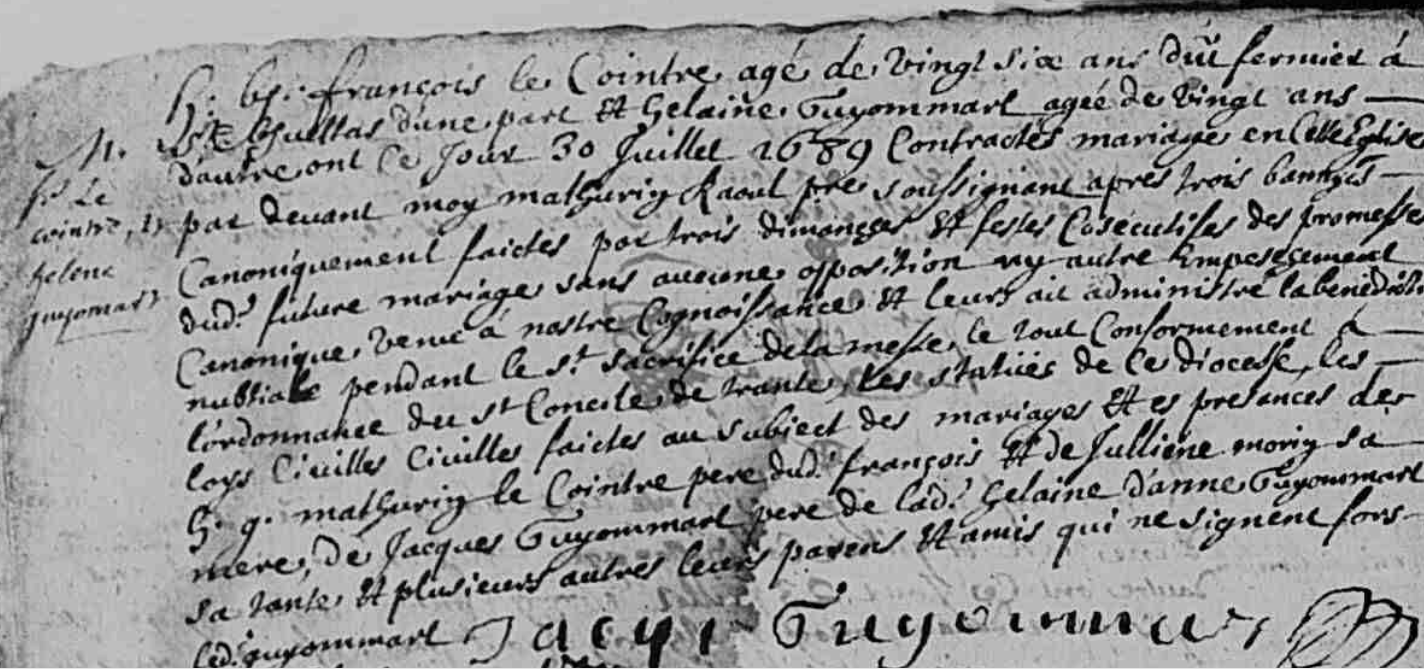 M.
fr. Le
cointre, &
helene
guyomart
h. gs. françois le Cointre agé de vingt six ans du fermier à
d'une part Et helaine Guyommart ageé de vingt ans
d'autre ont ce Jour 30 Juillet 1689 Contractes mariage en Celle Eglise
par devant moy mathurin Raoul pre soussignant apres trois bannyes
Canoniquement faictes par trois dimanches Et festes Cosecutifes des promesse
dud. future mariage sans aucune opposition ny autre Empeschement
Canonique venue à nostre Cognoissance Et leurs ait administré la benedicti
nubtiale pendant le St. sacrifice de la messe, le tout Conformement à
l'ordonnance du St Concile de trante, les statües de ce diocesse, les
loys Civilles Civilles faictes au subiect des mariages Et es presances de
h. g. mathurin le Cointre pere dud. françois Et de Julliene morin sa
mere, de Jacques Guyommart pere de lad. helaine d'anne Guyommart
sa tante Et plusieurs autres leurs parens Et amis qui ne signent fors
led. guyommart Jacqs Guyommar